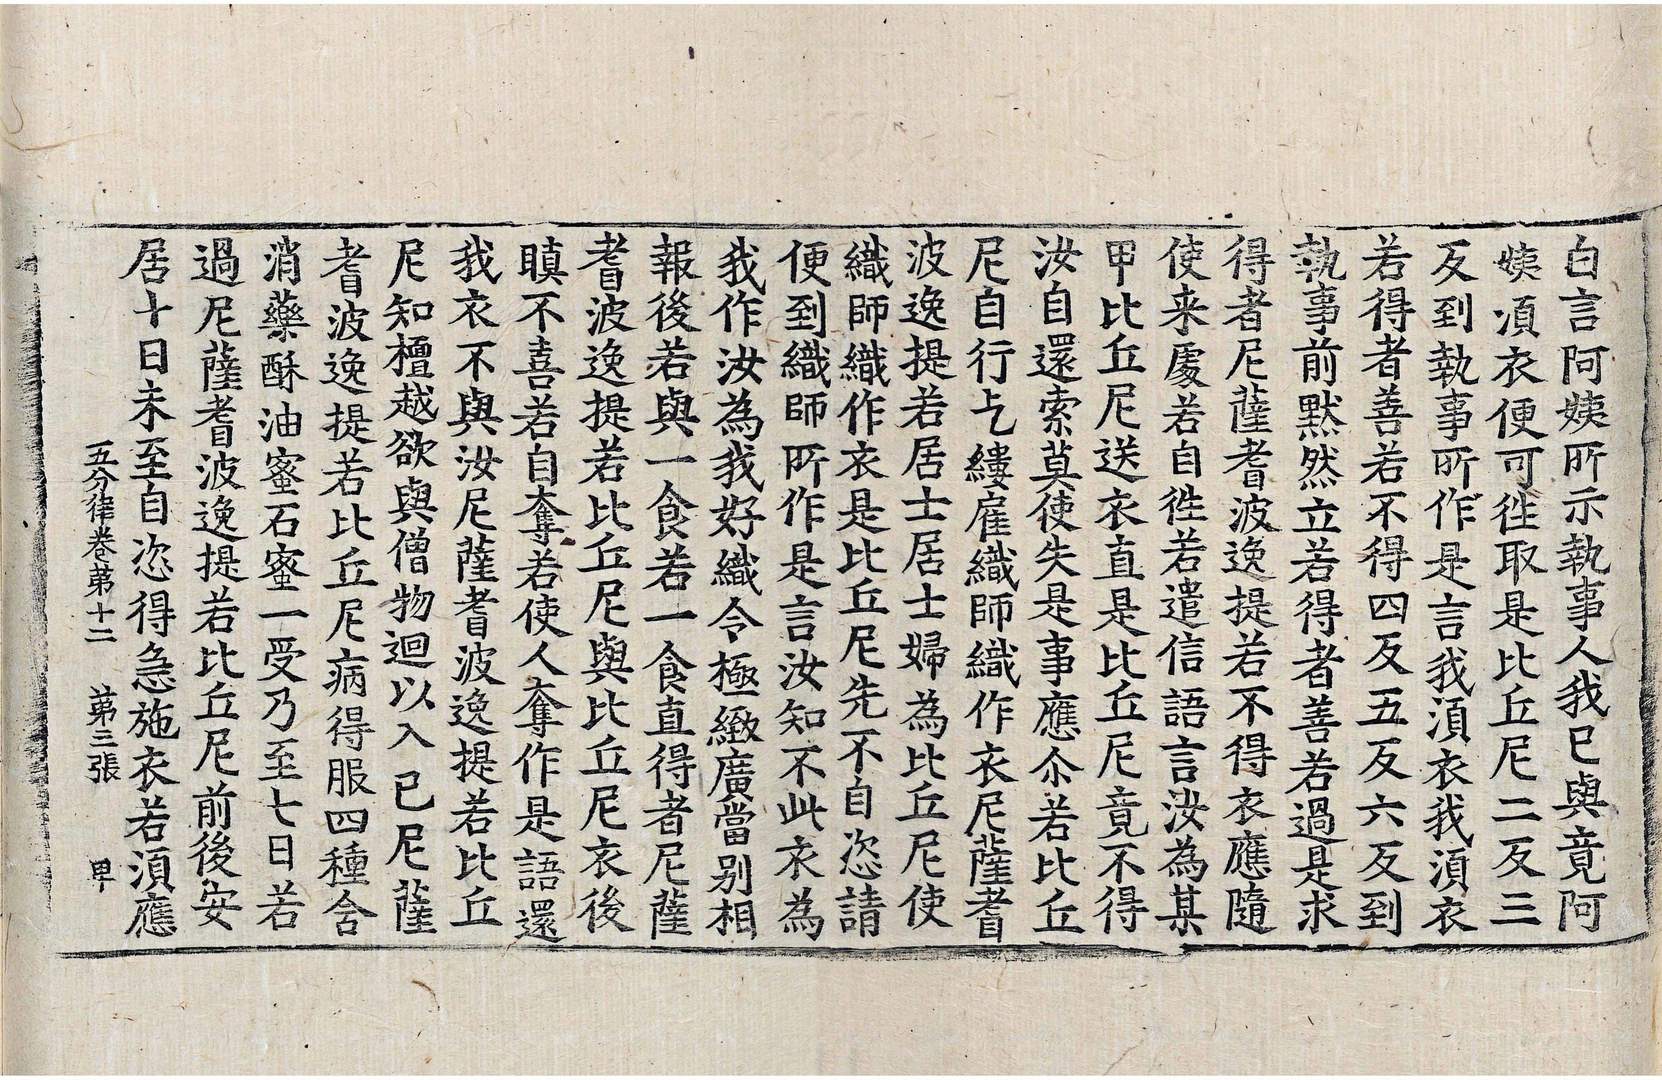 白言阿姨所示執事人我已與竟阿
姨湏衣便可徃取是比丘尼二反三
反到執事所作是言我湏衣我湏衣
若得者善若不得四反五反六反到
執事前黙然立若得者善若過是求
得者尼薩耆波逸提若不得衣應隨
使来處若自徃若遣信語言汝為某
甲比丘尼送衣直是比丘尼竟不得
汝自還索莫使失是事應尒若比丘
尼自行乞縷雇織師織作衣尼薩耆
波逸提若居士居士婦為比丘尼使
織師織作衣是比丘尼先不自恣請
便到織師所作是言汝知不此衣為
我作汝為我好織令極緻廣當别相
報後若與一食若一食直得者尼薩
耆波逸提若比丘尼與比丘尼衣後
瞋不喜若自奪若使人奪作是語還
我衣不與汝尼薩耆波逸提若比丘
尼知檀越欲與僧物迴以入已尼薩
耆波逸提若比丘尼病得服四種含
消藥酥油蜜石蜜一受乃至七日若
過尼薩耆波逸提若比丘尼前後安
居十日未至自恣得急施衣若湏應
五分律卷苐十二 苐三張 甲